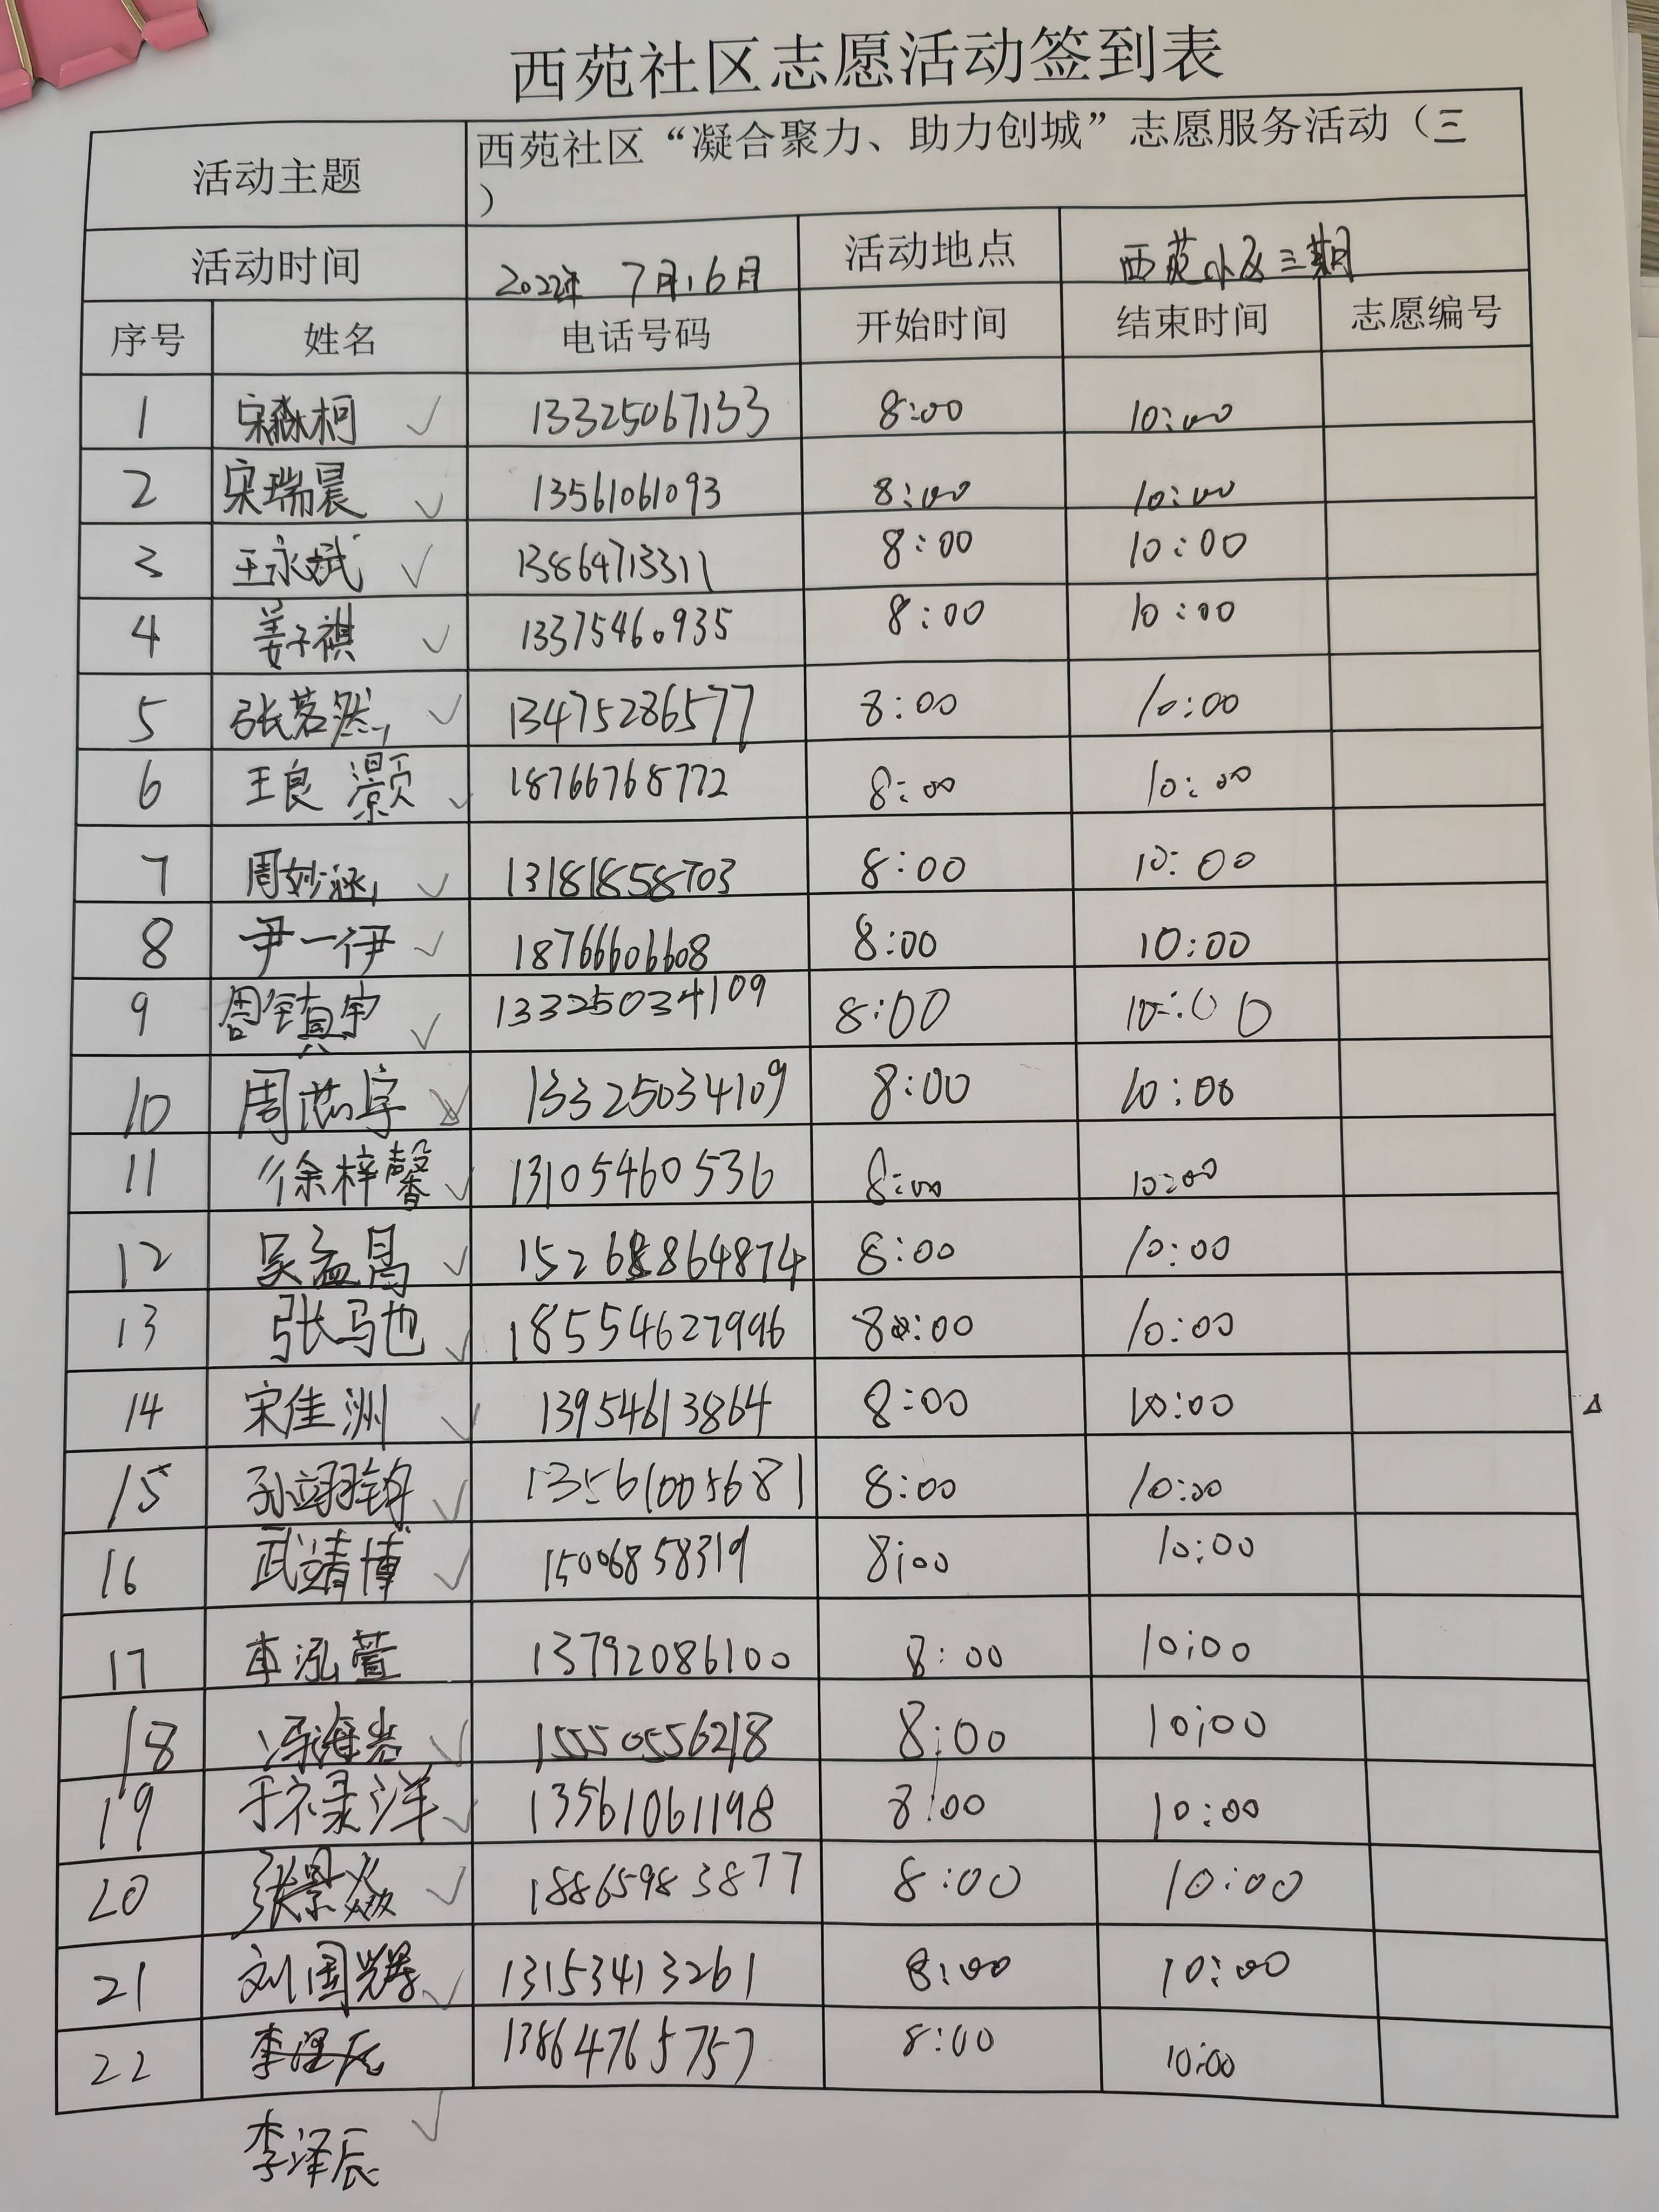 西苑社区志愿活动签到表
活动主题 西苑社区“凝合聚力、助力创城”志愿服务活动（三
）
活动时间 2022年 7月16日 活动地点 西苑小区三期
序号 姓名 电话号码 开始时间 结束时间 志愿编号
1 宋淼柯 ✓ 13325067133 8:00 10:00
2 宋瑞晨 ✓ 13561061093 8:00 10:00
3 王永斌 ✓ 13864713311 8:00 10:00
4 姜子祺 ✓ 13375460935 8:00 10:00
5 张茗然 ✓ 13475286577 8:00 10:00
6 王良灏 ✓ 18766768772 8:00 10:00
7 周妙涵 ✓ 13181858703 8:00 10:00
8 尹一伊 ✓ 18766606608 8:00 10:00
9 周镇宇 ✓ 13325034109 8:00 10:00
10 周芯宇 13325034109 8:00 10:00
11 徐梓馨 ✓ 13105460536 8:00 10:00
12 吴孟昌 ✓ 15268864874 8:00 10:00
13 张马也 ✓ 18554627996 8:00 10:00
14 宋佳洲 ✓ 13954613864 8:00 10:00
15 孙翊钧 ✓ 13561005681 8:00 10:00
16 武靖博 ✓ 15006858319 8:00 10:00
17 泓萱 13792086100 8:00 10:00
18 冯海 ✓ 15550556218 8:00 10:00
19 于禄洋 ✓ 13561061198 8:00 10:00
20 张景焱 ✓ 18865983877 8:00 10:00
21 刘国耀 ✓ 13153413261 8:00 10:00
22 李 13864765757 8:00 10:00
李泽辰 ✓